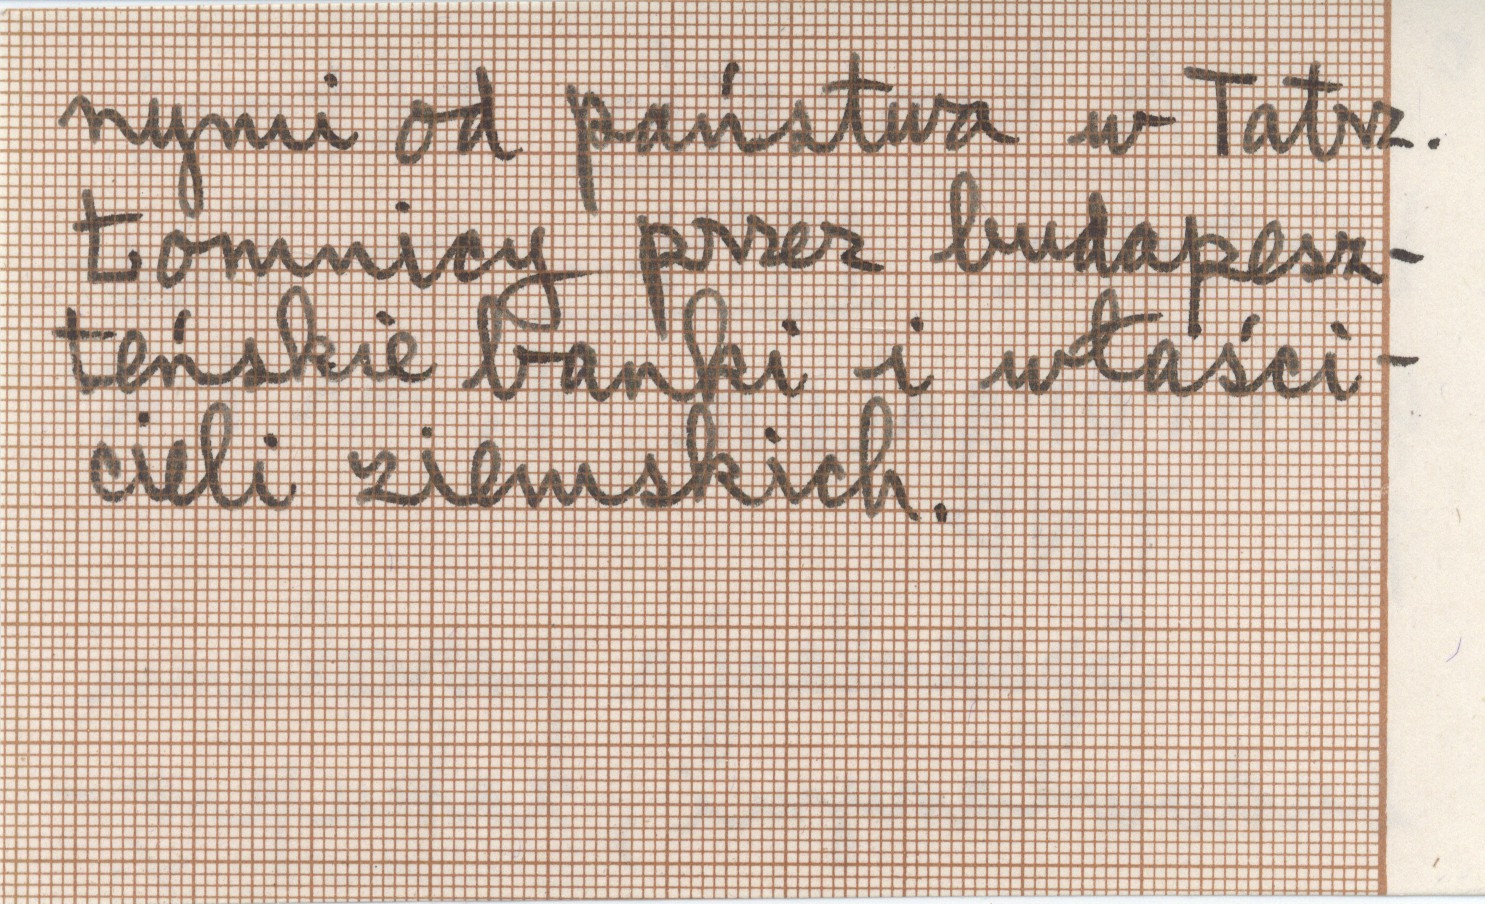 nymi od państwa w Tatrz.
Łomnicy przez budapesz-
teńskie banki i właści-
cieli ziemskich.